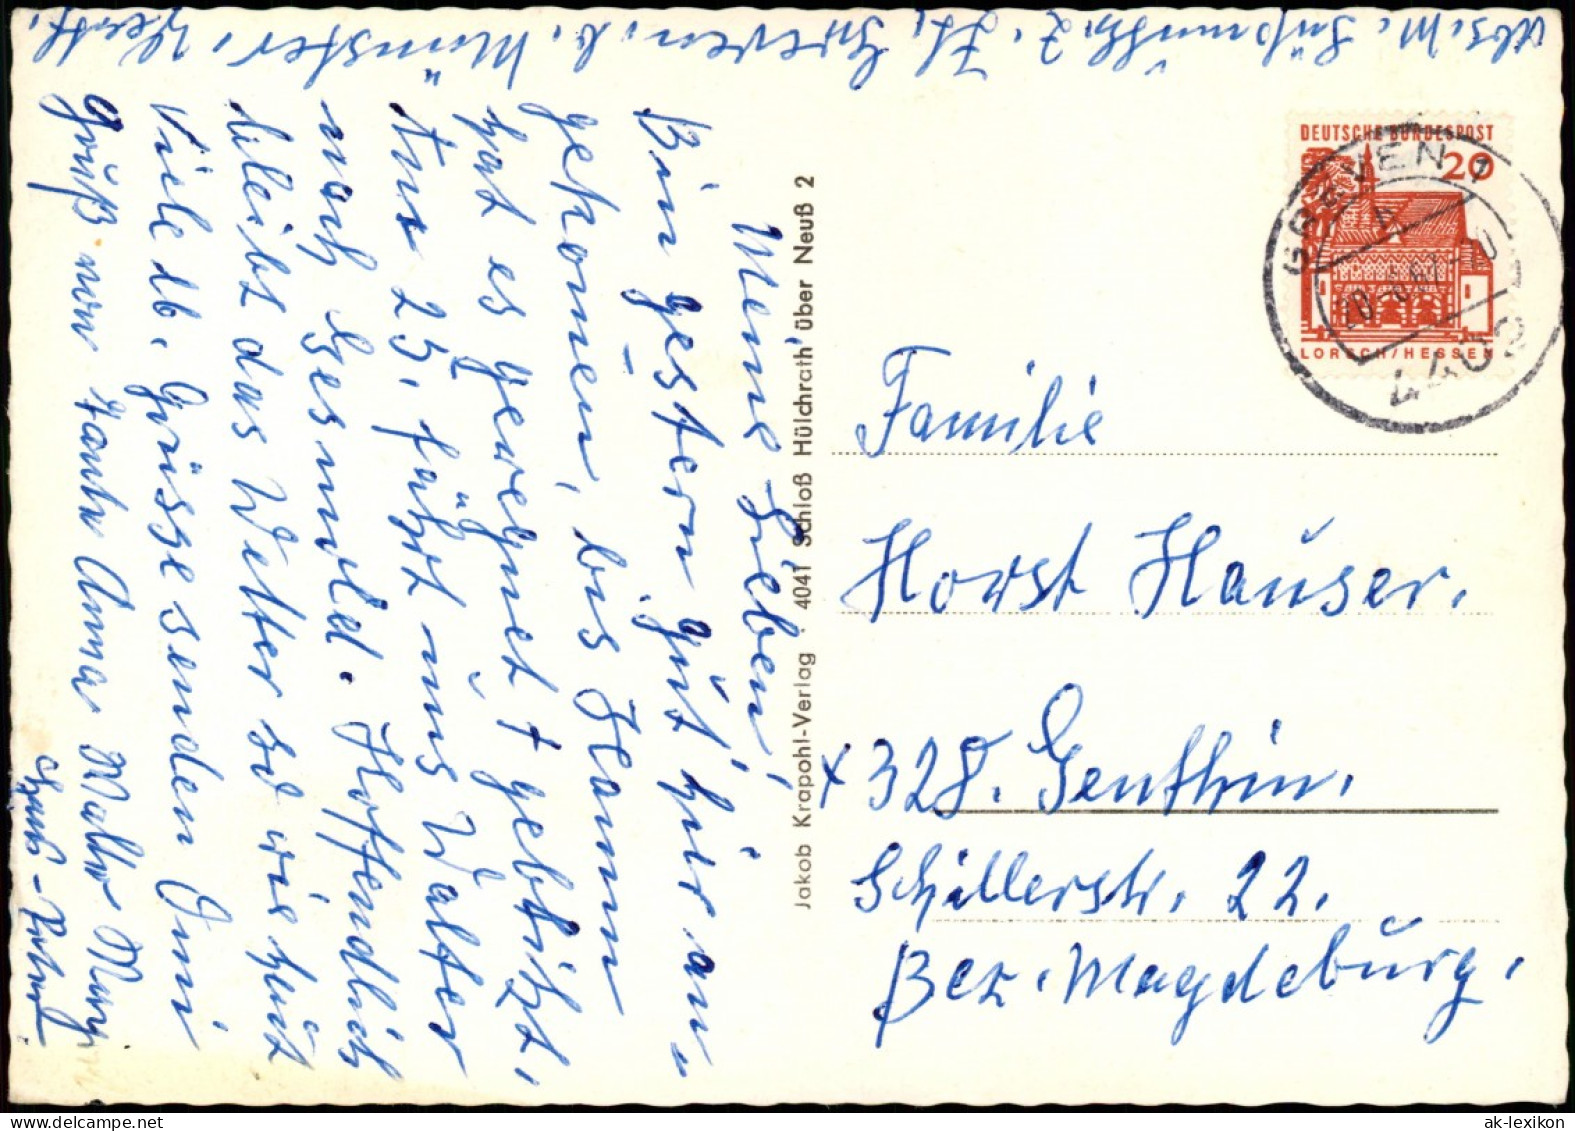 Meine Lieben!
Bin gestern gut hier an=
gekomen, bis Hamm
hat es geregnet + geblitzt,
tus 25, fährt uns Walter
nach Gesmold. Hoffendlich
bleibt das Wetter so wie heut
Viele lb. Grüsse senden Omi
Gruß von Tante Anna Walter Mary
Hans-
Abs. M. z. Zt. Greven. b. Münster. Westf.
Jakob Krapohl-Verlag · 4041 Schloß Hülchrath über Neuß 2
DEUTSCHE BUNDESPOST
20
LORSCH/HESSEN
GREVEN 1
4402
Familie
Horst Hauser.
+ 328. Genthin.
Schillerstr. 22.
Bez. Magdeburg.
ak-lexikon